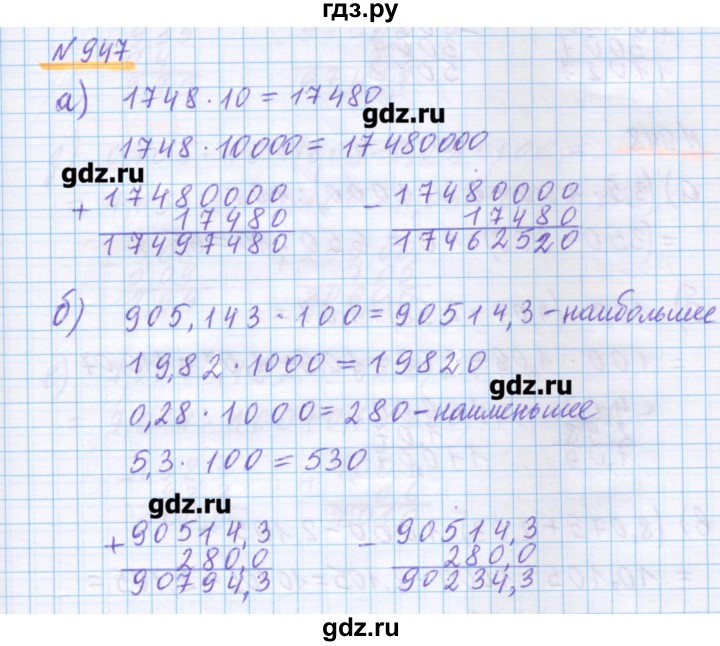 гдз.ру
N 947
а) 1748 · 10 = 17480
gdz.ru
1748 · 10000 = 17480000
gdz.ru
+ 17480000 - 17480000
17480 17480
17497480 17462520
б) 905,143 · 100 = 90514,3 - наибольшее
19,82 · 1000 = 19820
gdz.ru
0,28 · 1000 = 280 - наименьшее
5,3 · 100 = 530
gdz.ru
+ 90514,3 - 90514,3
280,0 280,0
90794,3 90234,3
gdz.ru